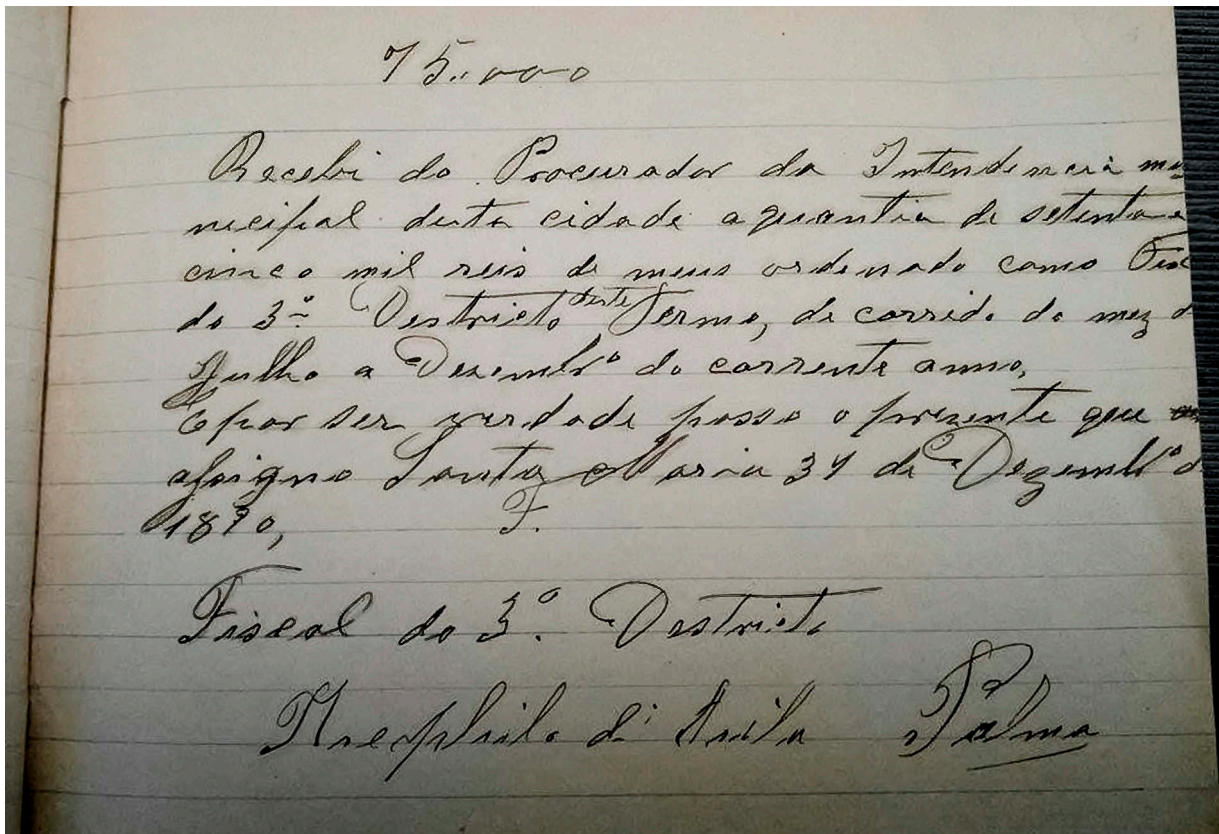 75..000
Recebi do Procurador da Intendencia mu
nicipal desta cidade a quantia de setenta e
cinco mil reis de meus ordenado como Fisc
do 3º Destricto deste Termo, de corrido do mez d
Julho a Dezembrº do corrente anno,
E por ser verdade passo o prezente que
assigno Santa Maria 31 de Dezembrº d
1890, F.
Fiscal do 3º. Destricto
di Avila Palma